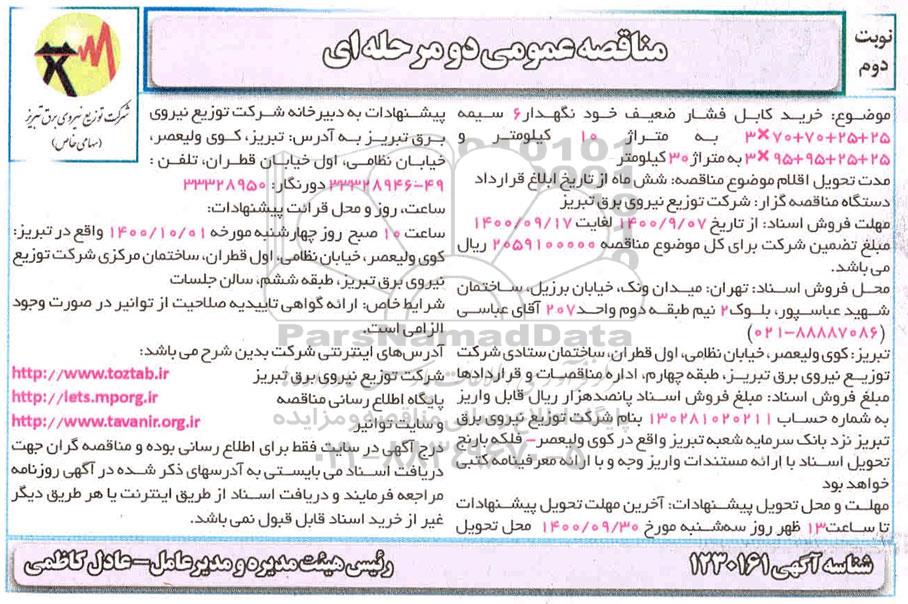 نوبت
دوم
مناقصه عمومی دو مرحله ای
شرکت توزیع نیروی برق تبریز
(سهامی خاص)
موضوع: خرید کابل فشار ضعیف خود نگهدار ۶ سیمه
۳×۷۰+۷۰+۲۵+۲۵ به متراژ ۱۰ کیلومتر و
۳×۹۵+۹۵+۲۵+۲۵ به متراژ ۳۰ کیلومتر
مدت تحویل اقلام موضوع مناقصه: شش ماه از تاریخ ابلاغ قرارداد
دستگاه مناقصه گزار: شرکت توزیع نیروی برق تبریز
مهلت فروش اسناد: از تاریخ ۱۴۰۰/۹/۰۷ لغایت ۱۴۰۰/۰۹/۱۷
مبلغ تضمین شرکت برای کل موضوع مناقصه ۲۰۵۹۱۰۰۰۰۰ ریال
می باشد.
محل فروش اسناد: تهران: میدان ونک، خیابان برزیل، ساختمان
شهید عباسپور، بلوک ۲ نیم طبقه دوم واحد ۲۰۷ آقای عباسی
(۰۲۱-۸۸۸۸۷۰۸۶)
تبریز: کوی ولیعصر، خیابان نظامی، اول قطران، ساختمان ستادی شرکت
توزیع نیروی برق تبریز، طبقه چهارم، اداره مناقصات و قراردادها
مبلغ فروش اسناد: مبلغ فروش اسناد پانصدهزار ریال قابل واریز
به شماره حساب ۱۳۰۲۸۱۰۲۰۲۱۱ بنام شرکت توزیع نیروی برق
تبریز نزد بانک سرمایه شعبه تبریز واقع در کوی ولیعصر- فلکه بارنج
تحویل اسناد با ارائه مستندات واریز وجه و با ارائه معرفینامه کتبی
خواهد بود
مهلت و محل تحویل پیشنهادات: آخرین مهلت تحویل پیشنهادات
تا ساعت ۱۳ ظهر روز سه‌شنبه مورخ ۱۴۰۰/۰۹/۳۰ محل تحویل
پیشنهادات به دبیرخانه شرکت توزیع نیروی
برق تبریز به آدرس: تبریز، کوی ولیعصر،
خیابان نظامی، اول خیابان قطران، تلفن :
۳۳۳۲۸۹۴۶-۴۹ دورنگار: ۳۳۳۲۸۹۵۰
ساعت، روز و محل قرائت پیشنهادات:
ساعت ۱۰ صبح روز چهارشنبه مورخه ۱۴۰۰/۱۰/۰۱ واقع در تبریز:
کوی ولیعصر، خیابان نظامی، اول قطران، ساختمان مرکزی شرکت توزیع
نیروی برق تبریز، طبقه ششم، سالن جلسات
شرایط خاص: ارائه گواهی تاییدیه صلاحیت از توانیر در صورت وجود
الزامی است.
آدرس‌های اینترنتی شرکت بدین شرح می باشد:
شرکت توزیع نیروی برق تبریز http://www.toztab.ir
پایگاه اطلاع رسانی مناقصه http://iets.mporg.ir
و سایت توانیر http://www.tavanir.org.ir
درج آگهی در سایت فقط برای اطلاع رسانی بوده و مناقصه گران جهت
دریافت اسناد می بایستی به آدرسهای ذکر شده در آگهی روزنامه
مراجعه فرمایند و دریافت اسناد از طریق اینترنت یا هر طریق دیگر
غیر از خرید اسناد قابل قبول نمی باشد.
شناسه آگهی ۱۲۳۰۱۶۱
رئیس هیئت مدیره و مدیرعامل - عادل کاظمی
ParsNamadData
پایگاه اطلاع رسانی مناقصه و مزایده
۰۲۱-۸۸۳۴۹۶۷۰-۵